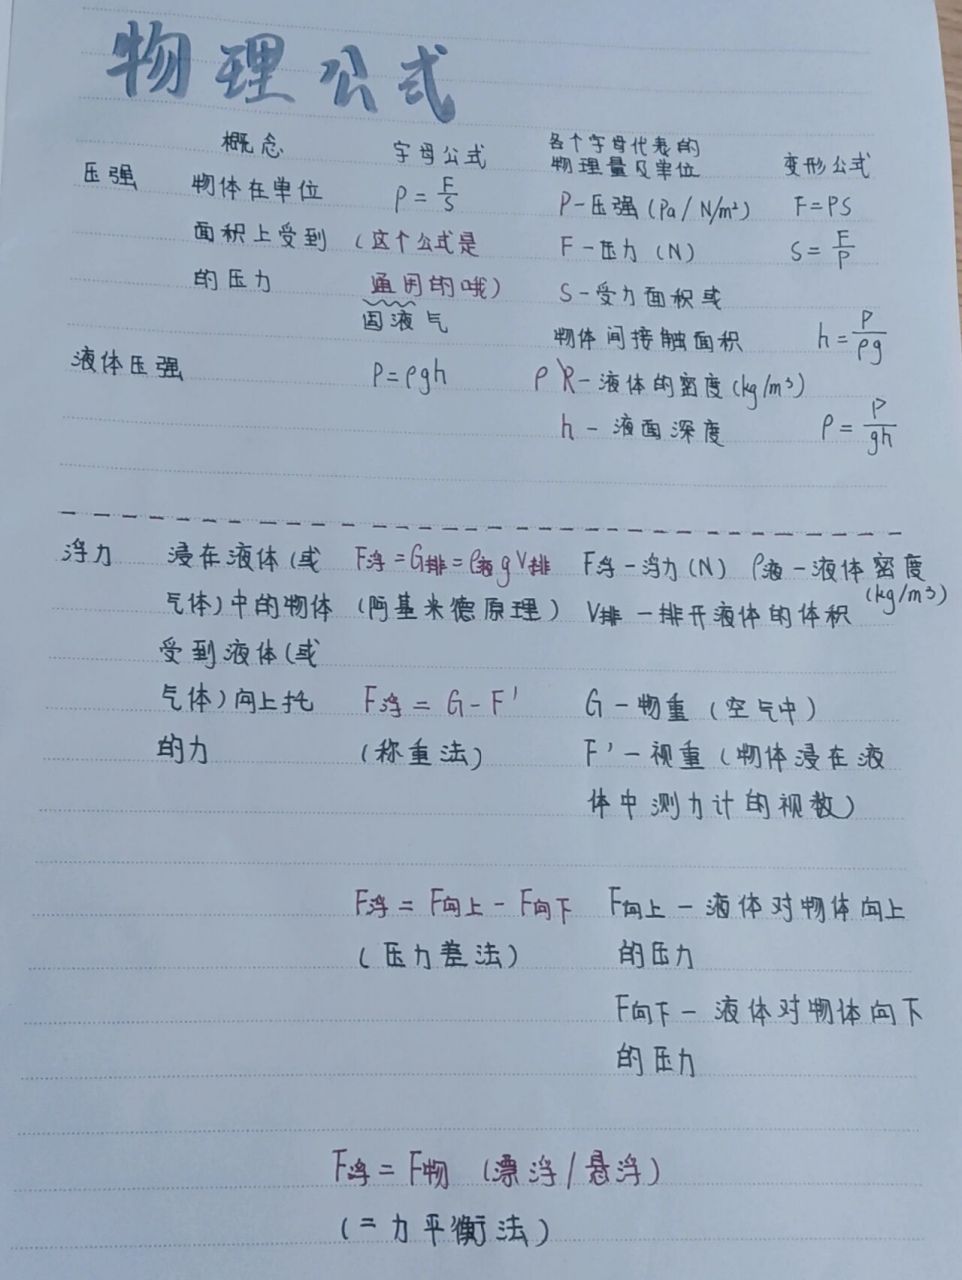 物理公式
概念 字母公式 各个字母代表的
物理量及单位 变形公式
压强 物体在单位 P=F/S P-压强(Pa/N/m²) F=PS
面积上受到 (这个公式是 F-压力(N) S=F/P
的压力 通用的哦) S-受力面积或
固液气 物体间接触面积 h=P/ρg
液体压强 P=ρgh ρ -液体的密度(kg/m³)
h-液面深度 ρ=P/gh
浮力 浸在液体(或 F浮=G排=ρ液gV排 F浮-浮力(N) ρ液-液体密度
(kg/m3)
气体)中的物体 (阿基米德原理) V排-排开液体的体积
受到液体(或
气体)向上托 F浮=G-F' G-物重(空气中)
的力 (称重法) F'-视重(物体浸在液
体中测力计的视数)
F浮=F向上-F向下 F向上-液体对物体向上
(压力差法) 的压力
F向下-液体对物体向下
的压力
F浮=F物 (漂浮/悬浮)
(二力平衡法)